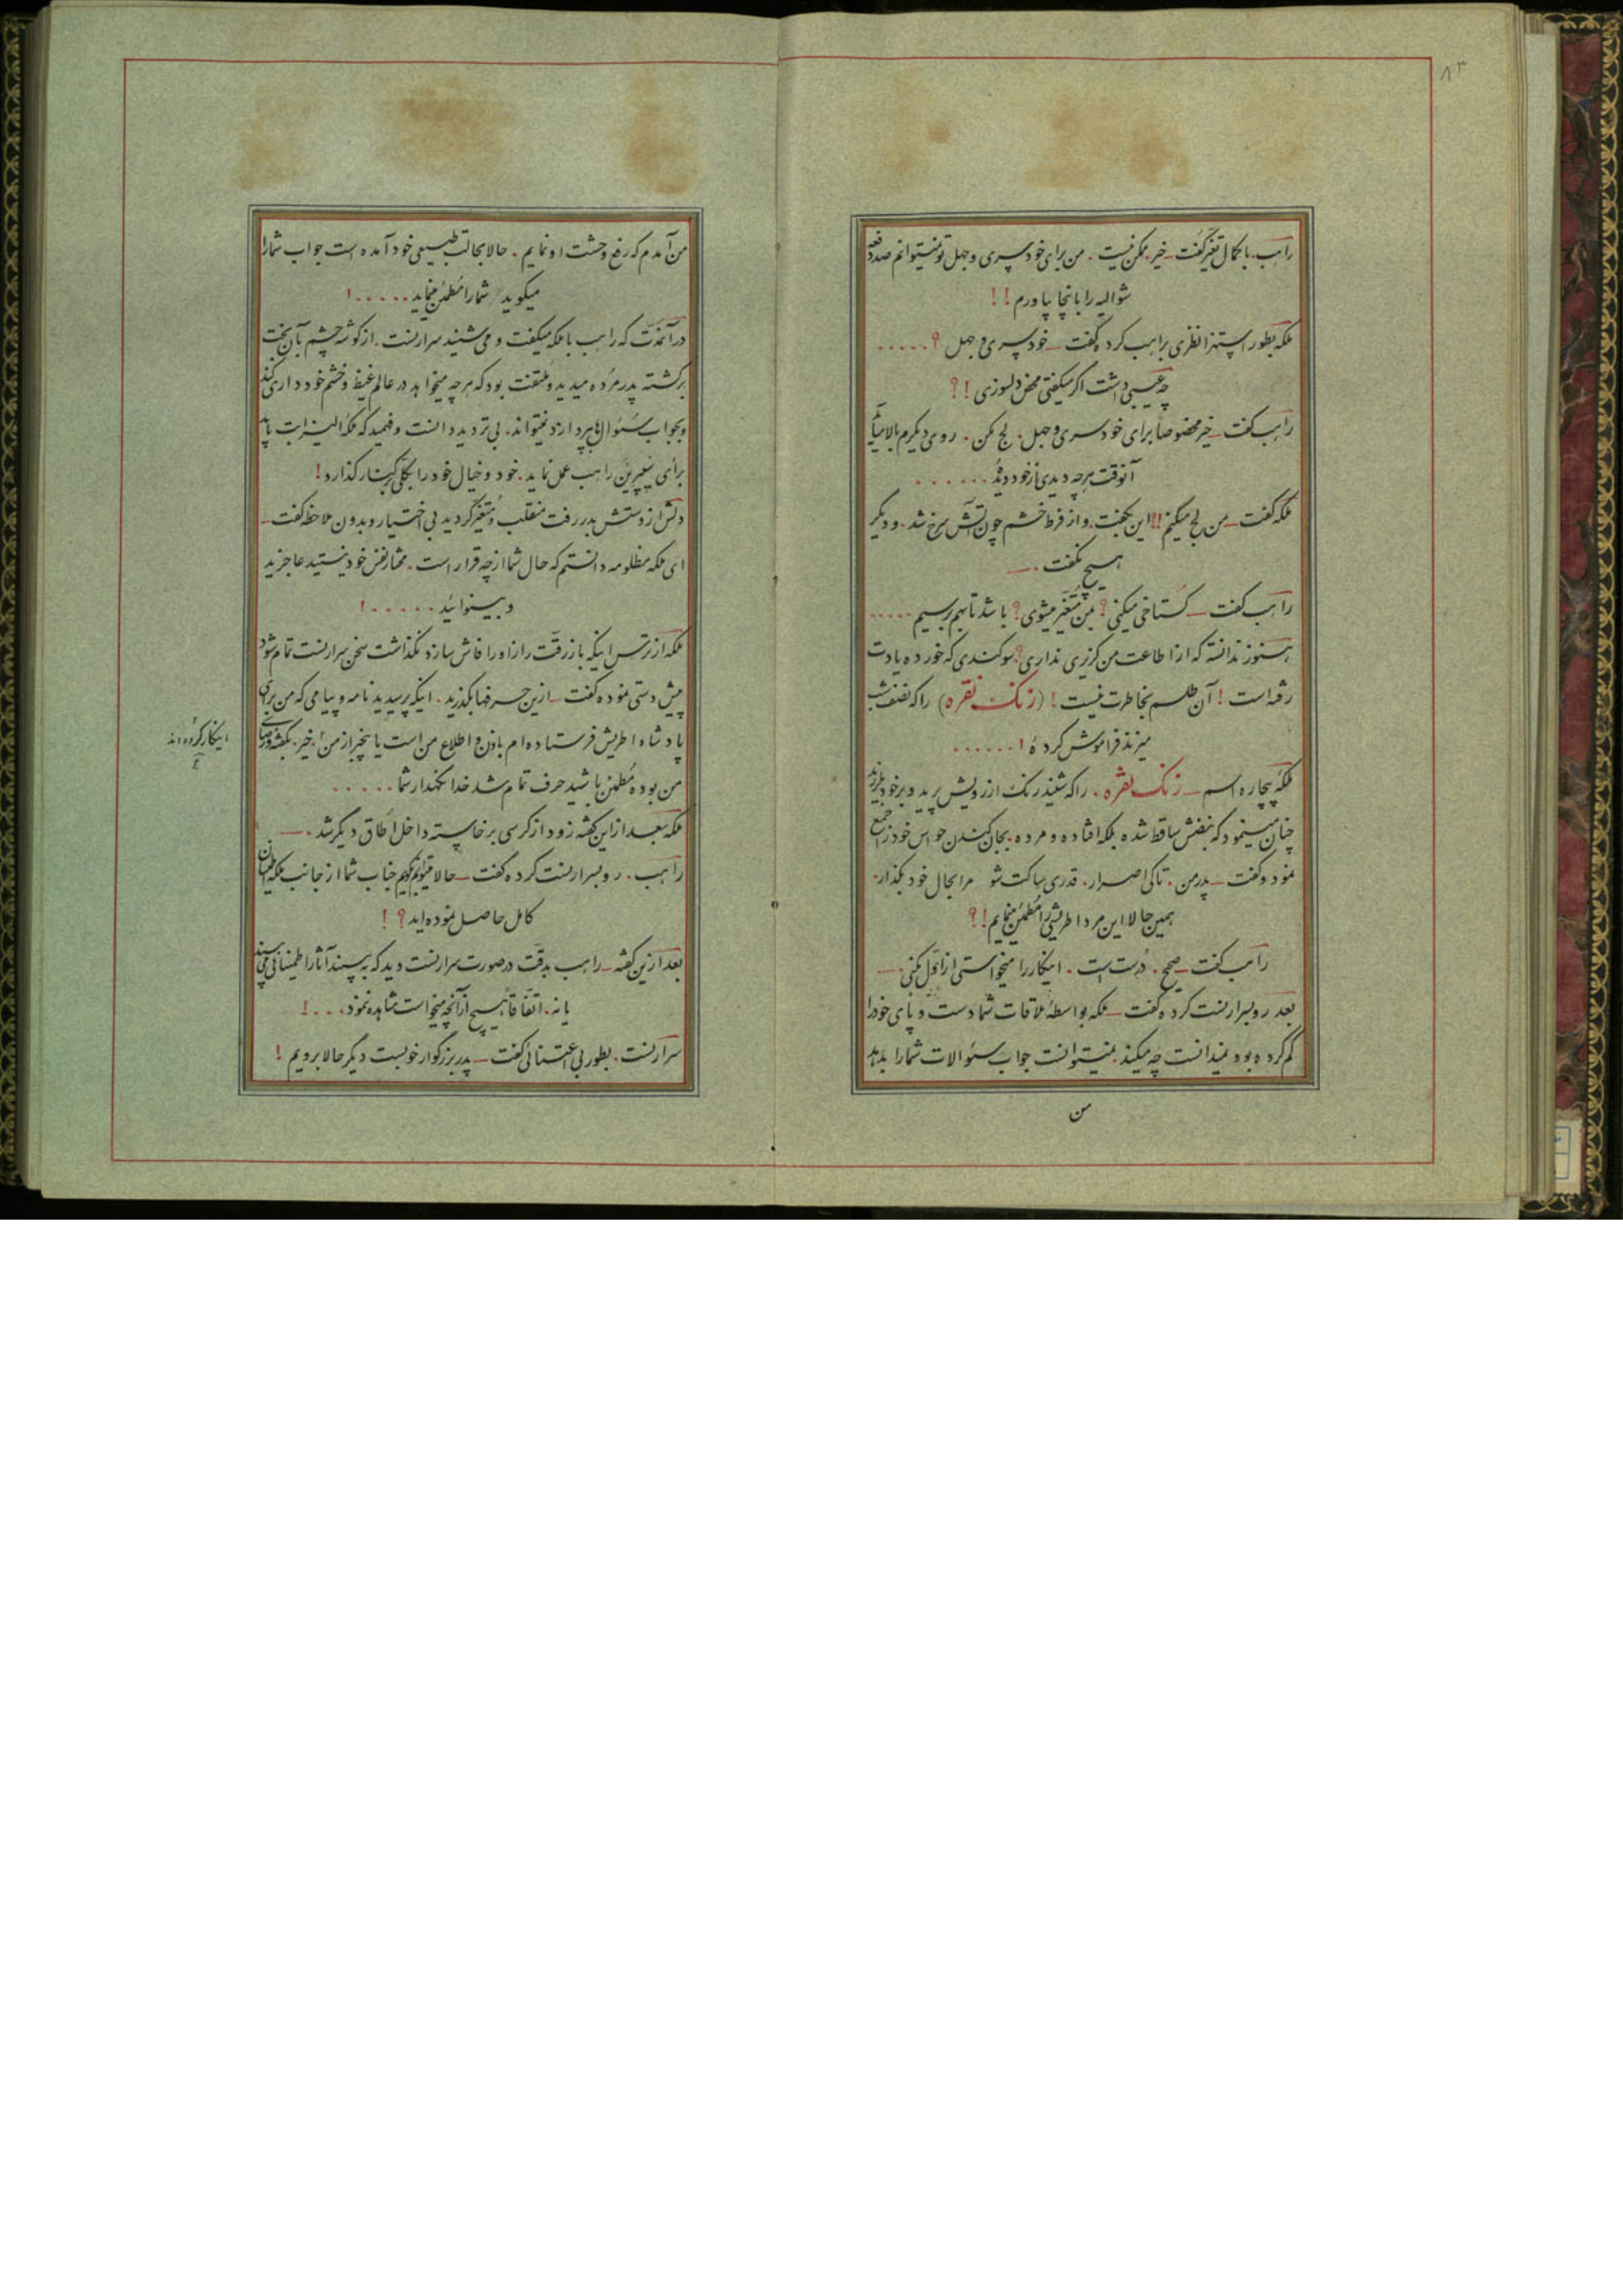 ۸۳
راهب. با کمال تغیر گفت ـ خیر. ممکن نیست. من برای خودسری و جهل تو نمیتوانم صد دفعه
شوالیه را باینجا بیاورم!!
ملکه بطور استهزا نظری براهب کرده گفت ـ خودسری و جهل؟.....
چه عیبی داشت اگر میگفتی محض دلسوزی!؟
راهب گفت ـ خیر مخصوصاً برای خودسری و جهل. لج مکن. روی دیگرم بالا میآید
آنوقت هرچه دیدی از خود دیدۀ.......
ملکه گفت ـ من لج میکنم!؟ این بگفت. و از فرط خشم چون آتش سرخ شد. و دیگر
هیچ نگفت. ـ
راهب گفت ـ گستاخی میکنی؟ بمن متغیر میشوی؟ باشد تا بهم برسیم.....
هنوز ندانستۀ که از اطاعت من گزیری نداری؟ سوگندی که خوردۀ یادت
رفته است! آن طلسم بخاطرت نیست! (زنگ نقره) را که نصف شب
میزند فراموش کردۀ!......
ملکۀ بیچاره اسم ـ زنگ نقره. را که شنید رنگ از رویش پرید و بر خود بلرزید
چنان مینمود که نبضش ساقط شده بلکه افتاده و مرده. بجان کندن حواس خود را جمع
نمود و گفت ـ پدر من. تا کی اصرار. قدری ساکت شو مرا بحال خود بگذار.
همین حالا این مرد اطریشی را مطمئن مینمایم!؟
راهب گفت ـ صحیح. درست است. اینکار را میخواستی از اول بکنی. ـ
بعد رو بسرارنست کرده گفت ـ ملکه بواسطۀ ملاقات شما دست و پای خود را
گم کرده بود نمیدانست چه میکند. نمیتوانست جواب سئوالات شما را بدهد
من
من آمدم که رفع وحشت او نمایم. حالا بحالت طبیعی خود آمده است جواب شما را
میگوید/ شما را مطمئن مینماید.....!
در آنمدت که راهب با ملکه میگفت و می شنید سرارنست. از گوشه چشم بآن بخت
برگشته پدر مرده میدید و ملتفت بود که هرچه میخواهد در عالم غیظ و خشم خود داری کند
و بجواب سئوالها بپردازد نمیتواند. بی تردید دانست و فهمید که ملکه الیزابت باید
برأی پیرین راهب عمل نماید. خود و خیال خود را بکلی کنار گذارد!
دلش از دستش بدر رفت منقلب و متغیر گردید بی اختیار و بدون ملاحظه گفت ـ
ای ملکه مظلومه دانستم که حال شما از چه قرار است. مختار نفس خود نیستید عاجزید
و بینوائید.....!
ملکه از ترس اینکه باز رقت راز او را فاش سازد نگذاشت سخن سرارنست تمام شود
پیش دستی نموده گفت ـ از این حرفها بگذرید. اینکه پرسیدید نامه و پیامی که من برای
پادشاه اطریش فرستاده ام باذن و اطلاع من است یا بیخبر از من. خیر. بگفته و رضای
اینکار کرده اند
من بوده مطمئن باشید حرف تمام شد خدا نگهدار شما.....
ملکه بعد از این گفته زود از کرسی برخاسته داخل اطاق دیگر شد. ـ
راهب. رو بسرارنست کرده گفت ـ حالا میتوانم بگویم جناب شما از جانب ملکه اطمینان
کامل حاصل نموده اید؟!
بعد از این گفته ـ راهب بدقت در صورت سرارنست دید که به بیند آثار اطمینانی می بیند
یا نه. اتفاقاً هیچ از آنچه میخواست مشاهده ننمود....!
سرارنست. بطور بی اعتنائی گفت ـ پدر بزرگوار خوبست دیگر حالا برویم!